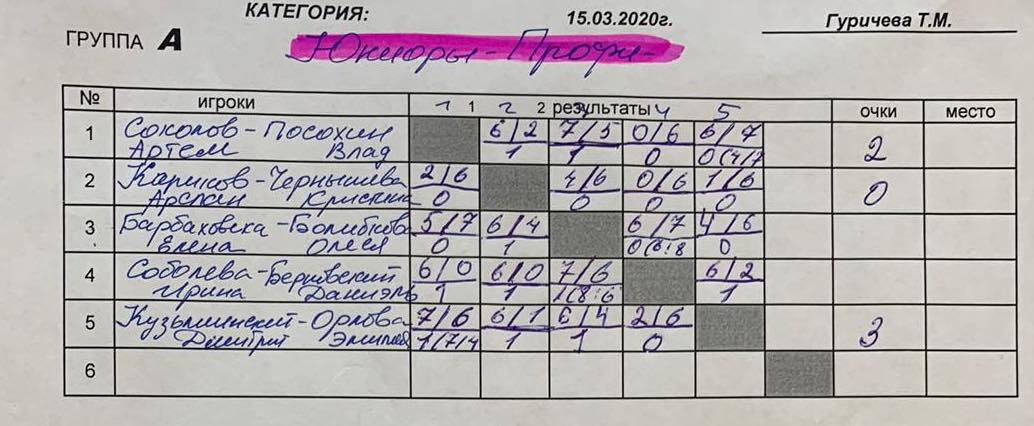 КАТЕГОРИЯ: 15.03.2020г. Гуричева Т.М.
ГРУППА А Юниоры-Профи-
№ игроки 1 1 2 2 результаты 3 4 5 очки место
1 Соколов-Посохин 6/2 7/5 0/6 6/7
Артем Влад 1 1 0 0(4/7 2
2 Кариков-Чернышева 2/6 4/6 0/6 1/6
Арслан Кристина 0 0 0 0 0
3 Барбаховска- 5/7 6/4 6/7 4/6
Елена Олеся 0 1 0(6:8 0
4 Соболева-Берковский 6/0 6/0 7/6 6/2
Ирина Даниэль 1 1 1(8:6 1
5 Кузьминский-Орлова 7/6 6/1 6/4 2/6
Дмитрий Эмилия 1(7/4 1 1 0 3
6